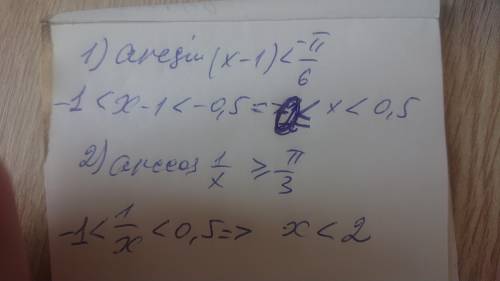 1) arcsin (x-1) < -π/6
-1 < x-1 < -0,5 = x < 0,5
2) arccos 1/x ≥ π/3
-1 < 1/x < 0,5 => x < 2